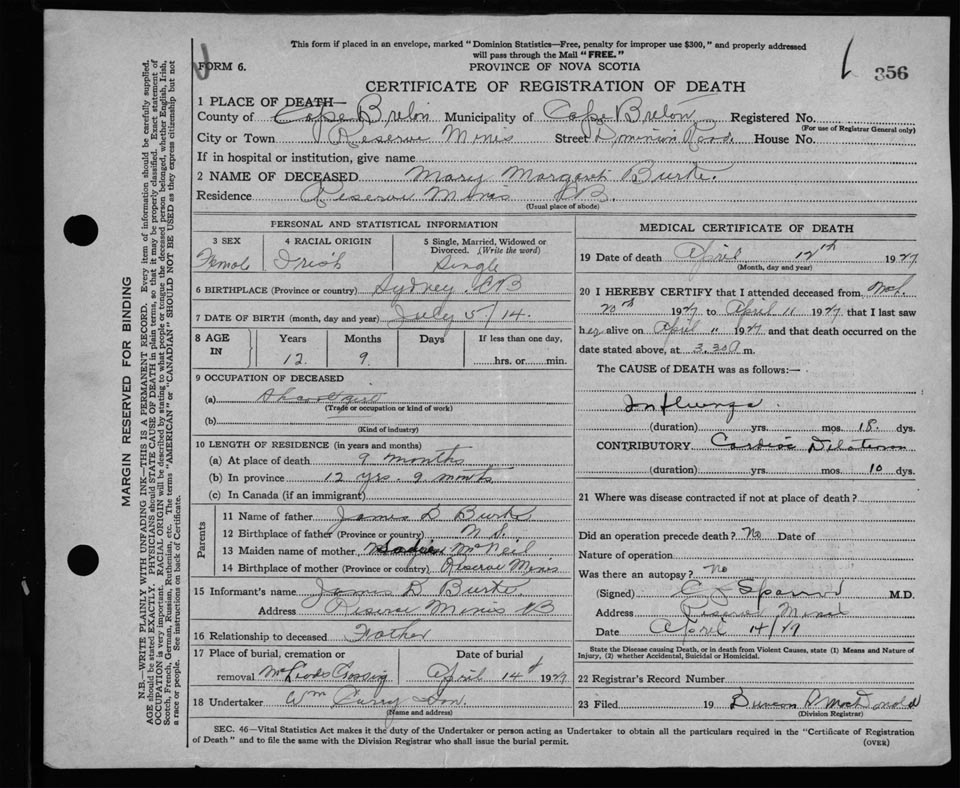 This form if placed in an envelope, marked "Dominion Statistics—Free, penalty for improper use $300," and properly addressed
will pass through the Mail "FREE."
FORM 6.
PROVINCE OF NOVA SCOTIA
356
CERTIFICATE OF REGISTRATION OF DEATH
1 PLACE OF DEATH—
County of Cape Breton Municipality of Cape Breton Registered No.
(For use of Registrar General only)
City or Town Reserve Mines Street Dominion Road House No.
If in hospital or institution, give name
2 NAME OF DECEASED Mary Margaret Burke.
Residence Reserve Mines CB.
(Usual place of abode)
PERSONAL AND STATISTICAL INFORMATION
3 SEX
Female
4 RACIAL ORIGIN
Irish
5 Single, Married, Widowed or
Divorced. (Write the word)
Single
6 BIRTHPLACE (Province or country) Sydney. CB
7 DATE OF BIRTH (month, day and year) July 5/14.
8 AGE IN
Years Months Days If less than one day,
12. 9. hrs. or min.
9 OCCUPATION OF DECEASED
(a) School girl
(Trade or occupation or kind of work)
(b)
(Kind of industry)
10 LENGTH OF RESIDENCE (in years and months)
(a) At place of death 9 months
(b) In province 12 yrs. 9 months
(c) In Canada (if an immigrant)
Parents
11 Name of father James D Burke
12 Birthplace of father (Province or country) N.S.
13 Maiden name of mother McNeil
14 Birthplace of mother (Province or country) Reserve Mines
15 Informant's name James D Burke.
Address Reserve Mines CB
16 Relationship to deceased Father
17 Place of burial, cremation or Date of burial
removal McLeods Crossing April 14 1927
18 Undertaker Wm Curry Son.
(Name and address)
MEDICAL CERTIFICATE OF DEATH
19 Date of death April 12th 1927
(Month, day and year)
20 I HEREBY CERTIFY that I attended deceased from Mch.
1927 to April 11 1927, that I last saw
her alive on April 11 1927 and that death occurred on
date stated above, at 3.30 m.
The CAUSE of DEATH was as follows:—
Influenza.
(duration) yrs. mos. 18. dys.
CONTRIBUTORY Cardiac Dilatation
(duration) yrs. mos. 10 dys.
21 Where was disease contracted if not at place of death?
Did an operation precede death? No Date of
Nature of operation
Was there an autopsy? No
(Signed) M.D.
Address Reserve Mines
Date April 14/27
State the Disease causing Death, or in death from Violent Causes, state (1) Means and Nature of
Injury, (2) whether Accidental, Suicidal or Homicidal.
22 Registrar's Record Number
23 Filed 19 Duncan A MacDonald
(Division Registrar)
SEC. 46—Vital Statistics Act makes it the duty of the Undertaker or person acting as Undertaker to obtain all the particulars required in the "Certificate of Registration
of Death" and to file the same with the Division Registrar who shall issue the burial permit.
(OVER)
MARGIN RESERVED FOR BINDING
N.B.—WRITE PLAINLY WITH UNFADING INK—THIS IS A PERMANENT RECORD. Every item of information should be carefully supplied.
AGE should be stated EXACTLY. PHYSICIANS should STATE CAUSE OF DEATH in plain terms, so that it may be properly classified. Exact statement of
OCCUPATION is very important. RACIAL ORIGIN will be described by stating to what people or tongue the deceased person belonged, whether English, Irish,
Scotch, French, German, Russian, Ruthenian, etc. The terms "AMERICAN" or "CANADIAN" SHOULD NOT BE USED as they express citizenship but not
a race or people. See instructions on back of Certificate.